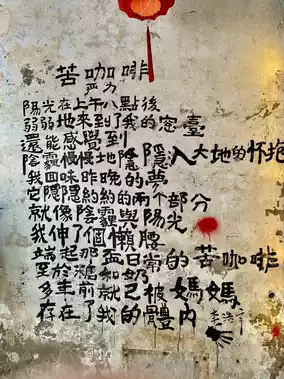 苦咖啡
严力
陽光在上午八點後
弱弱地來到了我的窗臺
還能感覺到
陰慢慢地隱入大地的怀抱
我回味昨晚的夢
它隱隱約約的兩个部分
就像陰霾與陽光
我伸了個懶腰
端起那盃日常的苦咖啡
至於糖和奶
多年前就已被媽媽
存在了我的體內